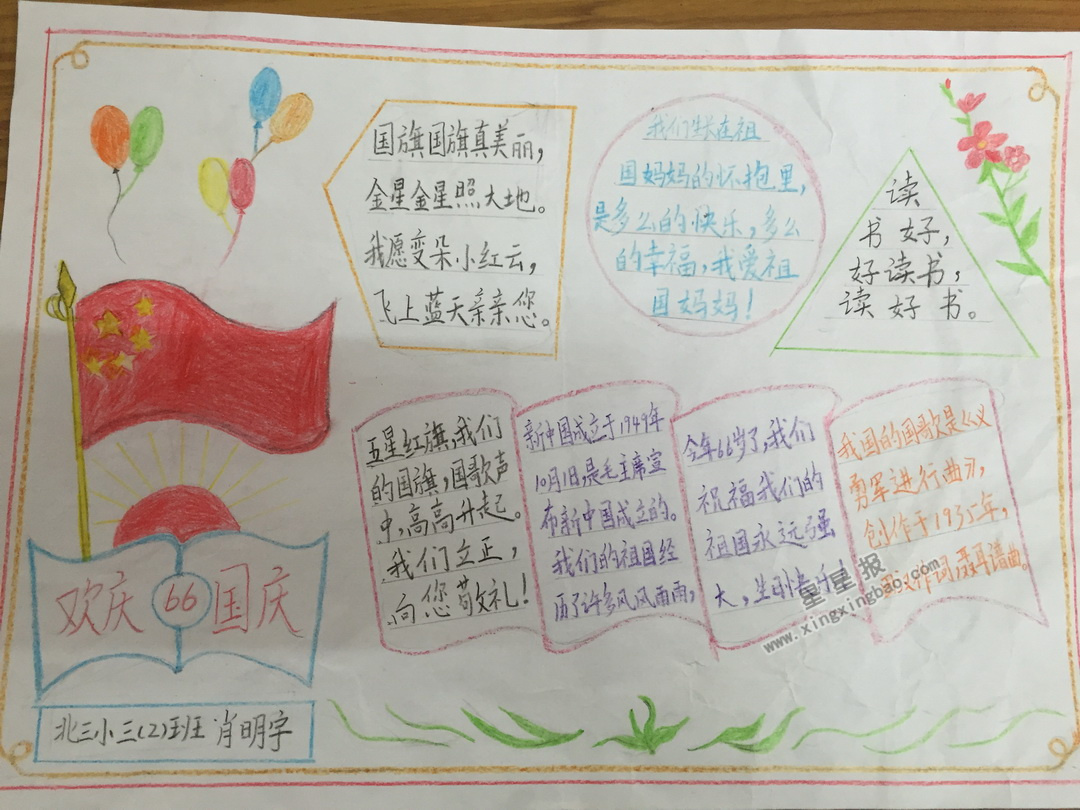 国旗国旗真美丽，
金星金星照大地。
我愿变朵小红云，
飞上蓝天亲亲您。
我们生长在祖
国妈妈的怀抱里，
是多么的快乐，多么
的幸福，我爱祖
国妈妈！
读
书好，
好读书，
读好书。
五星红旗，我们
的国旗，国歌声
中，高高升起。
我们立正，
向您敬礼！
新中国成立于1949年
10月1日，是毛主席宣
布新中国成立的。
我们的祖国经
历了许多风风雨雨，
今年66岁了，我们
祝福我们的
祖国永远强
大，生日快乐
我国的国歌是《义
勇军进行曲》，
创作于1935年，
作词，聂耳谱曲。
欢庆 66 国庆
北三小三(2)班 肖明宇
星星报
www.xingxingbao.com